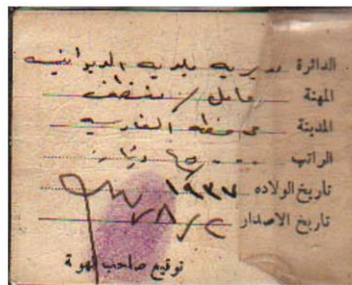 الدائرة مديرية بلدية الديوانية
المهنة عامل / منظف
المدينة محافظة القادسية
الراتب دينار
تاريخ الولادة ١٩٣٧
تاريخ الاصدار
توقيع صاحب الهوية